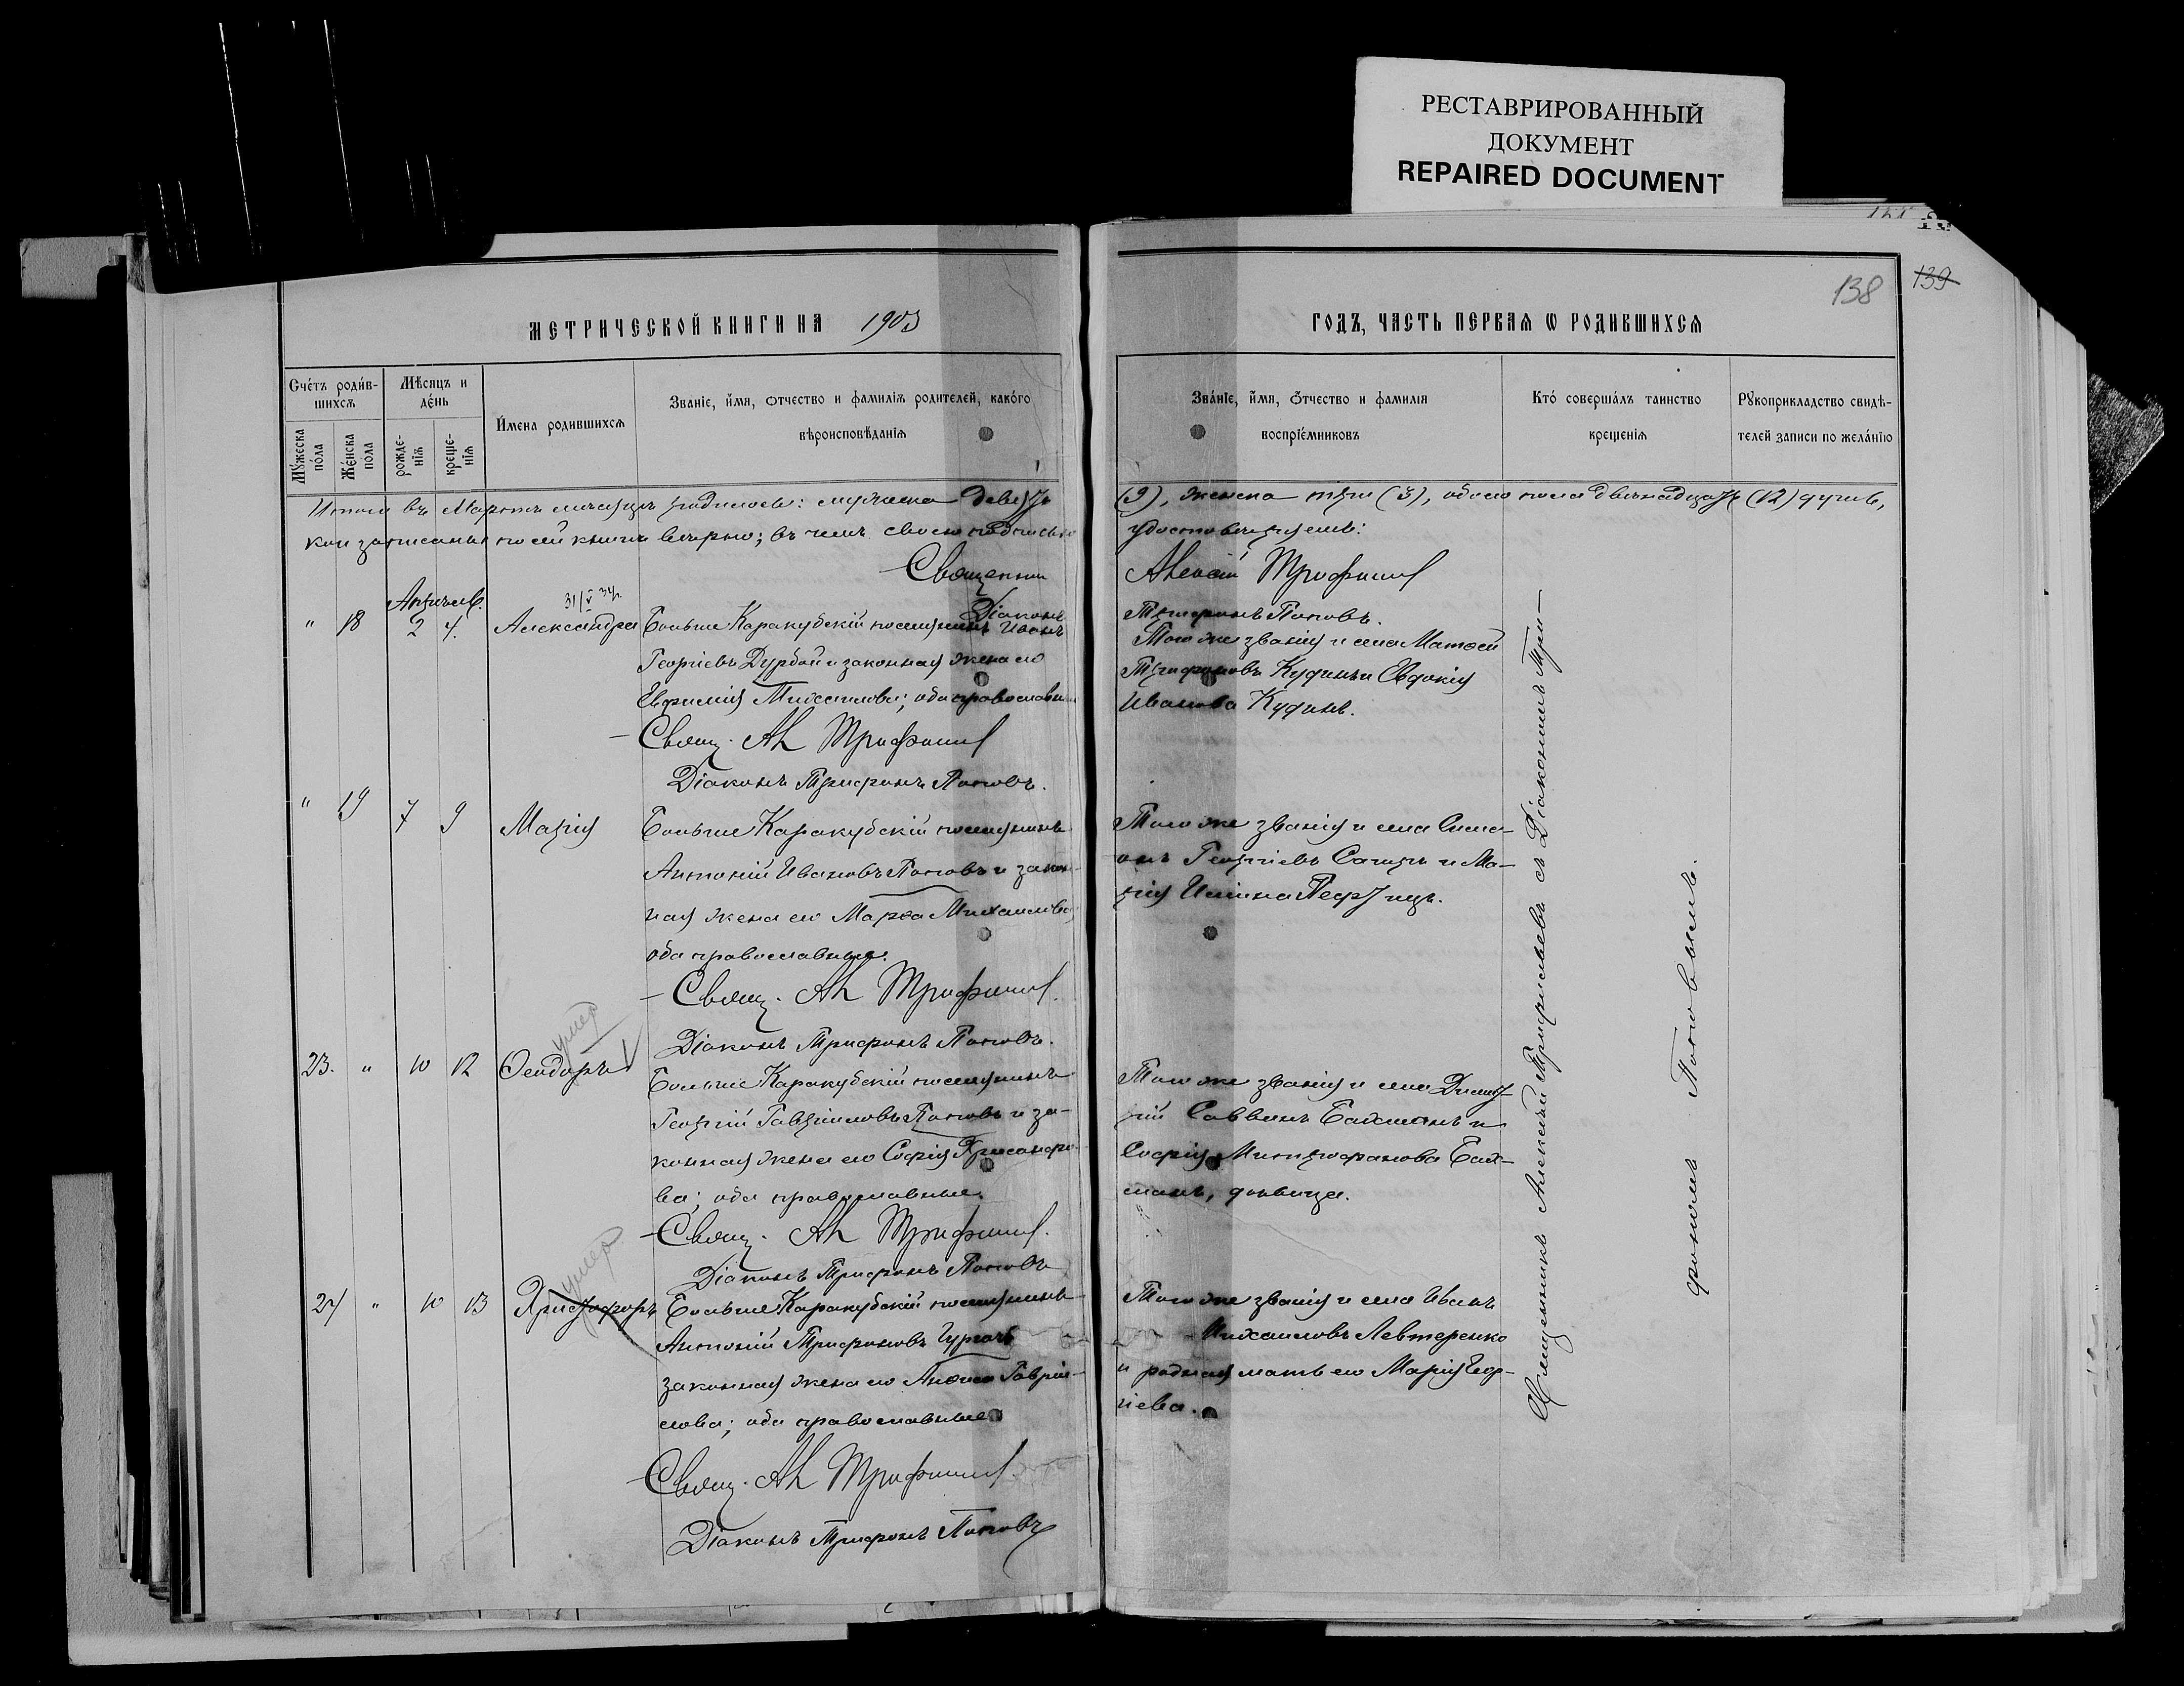 РЕСТАВРИРОВАННЫЙ
ДОКУМЕНТ
REPAIRED DOCUMENT
138
139
МЕТРИЧЕСКОЙ КНИГИ НА 1903
ГОДЪ, ЧАСТЬ ПЕРВАЯ Ѡ РОДИВШИХСЯ
Счетъ родив-
шихся
Мужеска
пола
Женска
пола
Мѣсяцъ и
день
рожде-
нія
креще-
нія
Имена родившихся
Званіе, имя, отчество и фамилія родителей, какого
вѣроисповѣданія
Званіе, имя, отчество и фамилія
воспріемниковъ
Кто совершалъ таинство
крещенія
Рукоприкладство свидѣ-
телей записи по желанію
Итого въ Мартѣ мѣсяцѣ родилось: мужеска девять (9), женска три (3), обоего пола двѣнадцать (12) душъ,
кои записаны по сей книгѣ вѣрно; въ чемъ своею подписью удостовѣряемъ:
Священник Алексій Трифильев
Діаконъ Трифонъ Поповъ.
Апрѣль.
31/V 34г.
" 18 2 4. Александра
Больше Каракубскій поселянинъ Иванъ
Георгіевъ Дурбай и законная жена его
Евфимія Михаилова; оба православные
Свящ. Ал Трифильев
Діаконъ Трифонъ Поповъ.
Того же званія и села Матѳей
Трифоновъ Кудинъ и Евдокія
Иванова Кудинъ.
" 19 7 9 Марія
Больше Каракубскій поселянинъ
Антоній Ивановъ Поповъ и закон-
ная жена его Марѳа Михаилова;
оба православные.
Свящ. Ал Трифильев.
Діаконъ Трифонъ Поповъ.
Того же званія и села Симе-
онъ Георгіевъ и Ма-
рія Ильина
умер
23. " 10 12 Ѳеодоръ
Больше Каракубскій поселянинъ
Георгій Гавріиловъ Поповъ и за-
конная жена его Софія Хрисанфо-
ва; оба православные.
Свящ. Ал Трифильев.
Діаконъ Трифонъ Поповъ
Того же званія и села Димит-
рій Саввинъ Бахманъ и
Софія Митрофанова Бах-
манъ, дѣвица.
умер
24 " 10 13 Христофоръ
Больше Каракубскій поселянинъ
Антоній Трифоновъ
законная жена его Анѳиса Гавріи-
лова; оба православные
Свящ. Ал Трифильев.
Діаконъ Трифонъ Поповъ
Того же званія и села Иванъ
Михаиловъ Левтеренко
и родная мать его Марія Геор-
гіева.
Священникъ Алексѣй Трифильевъ съ Діакономъ Три-
фономъ Поповымъ.